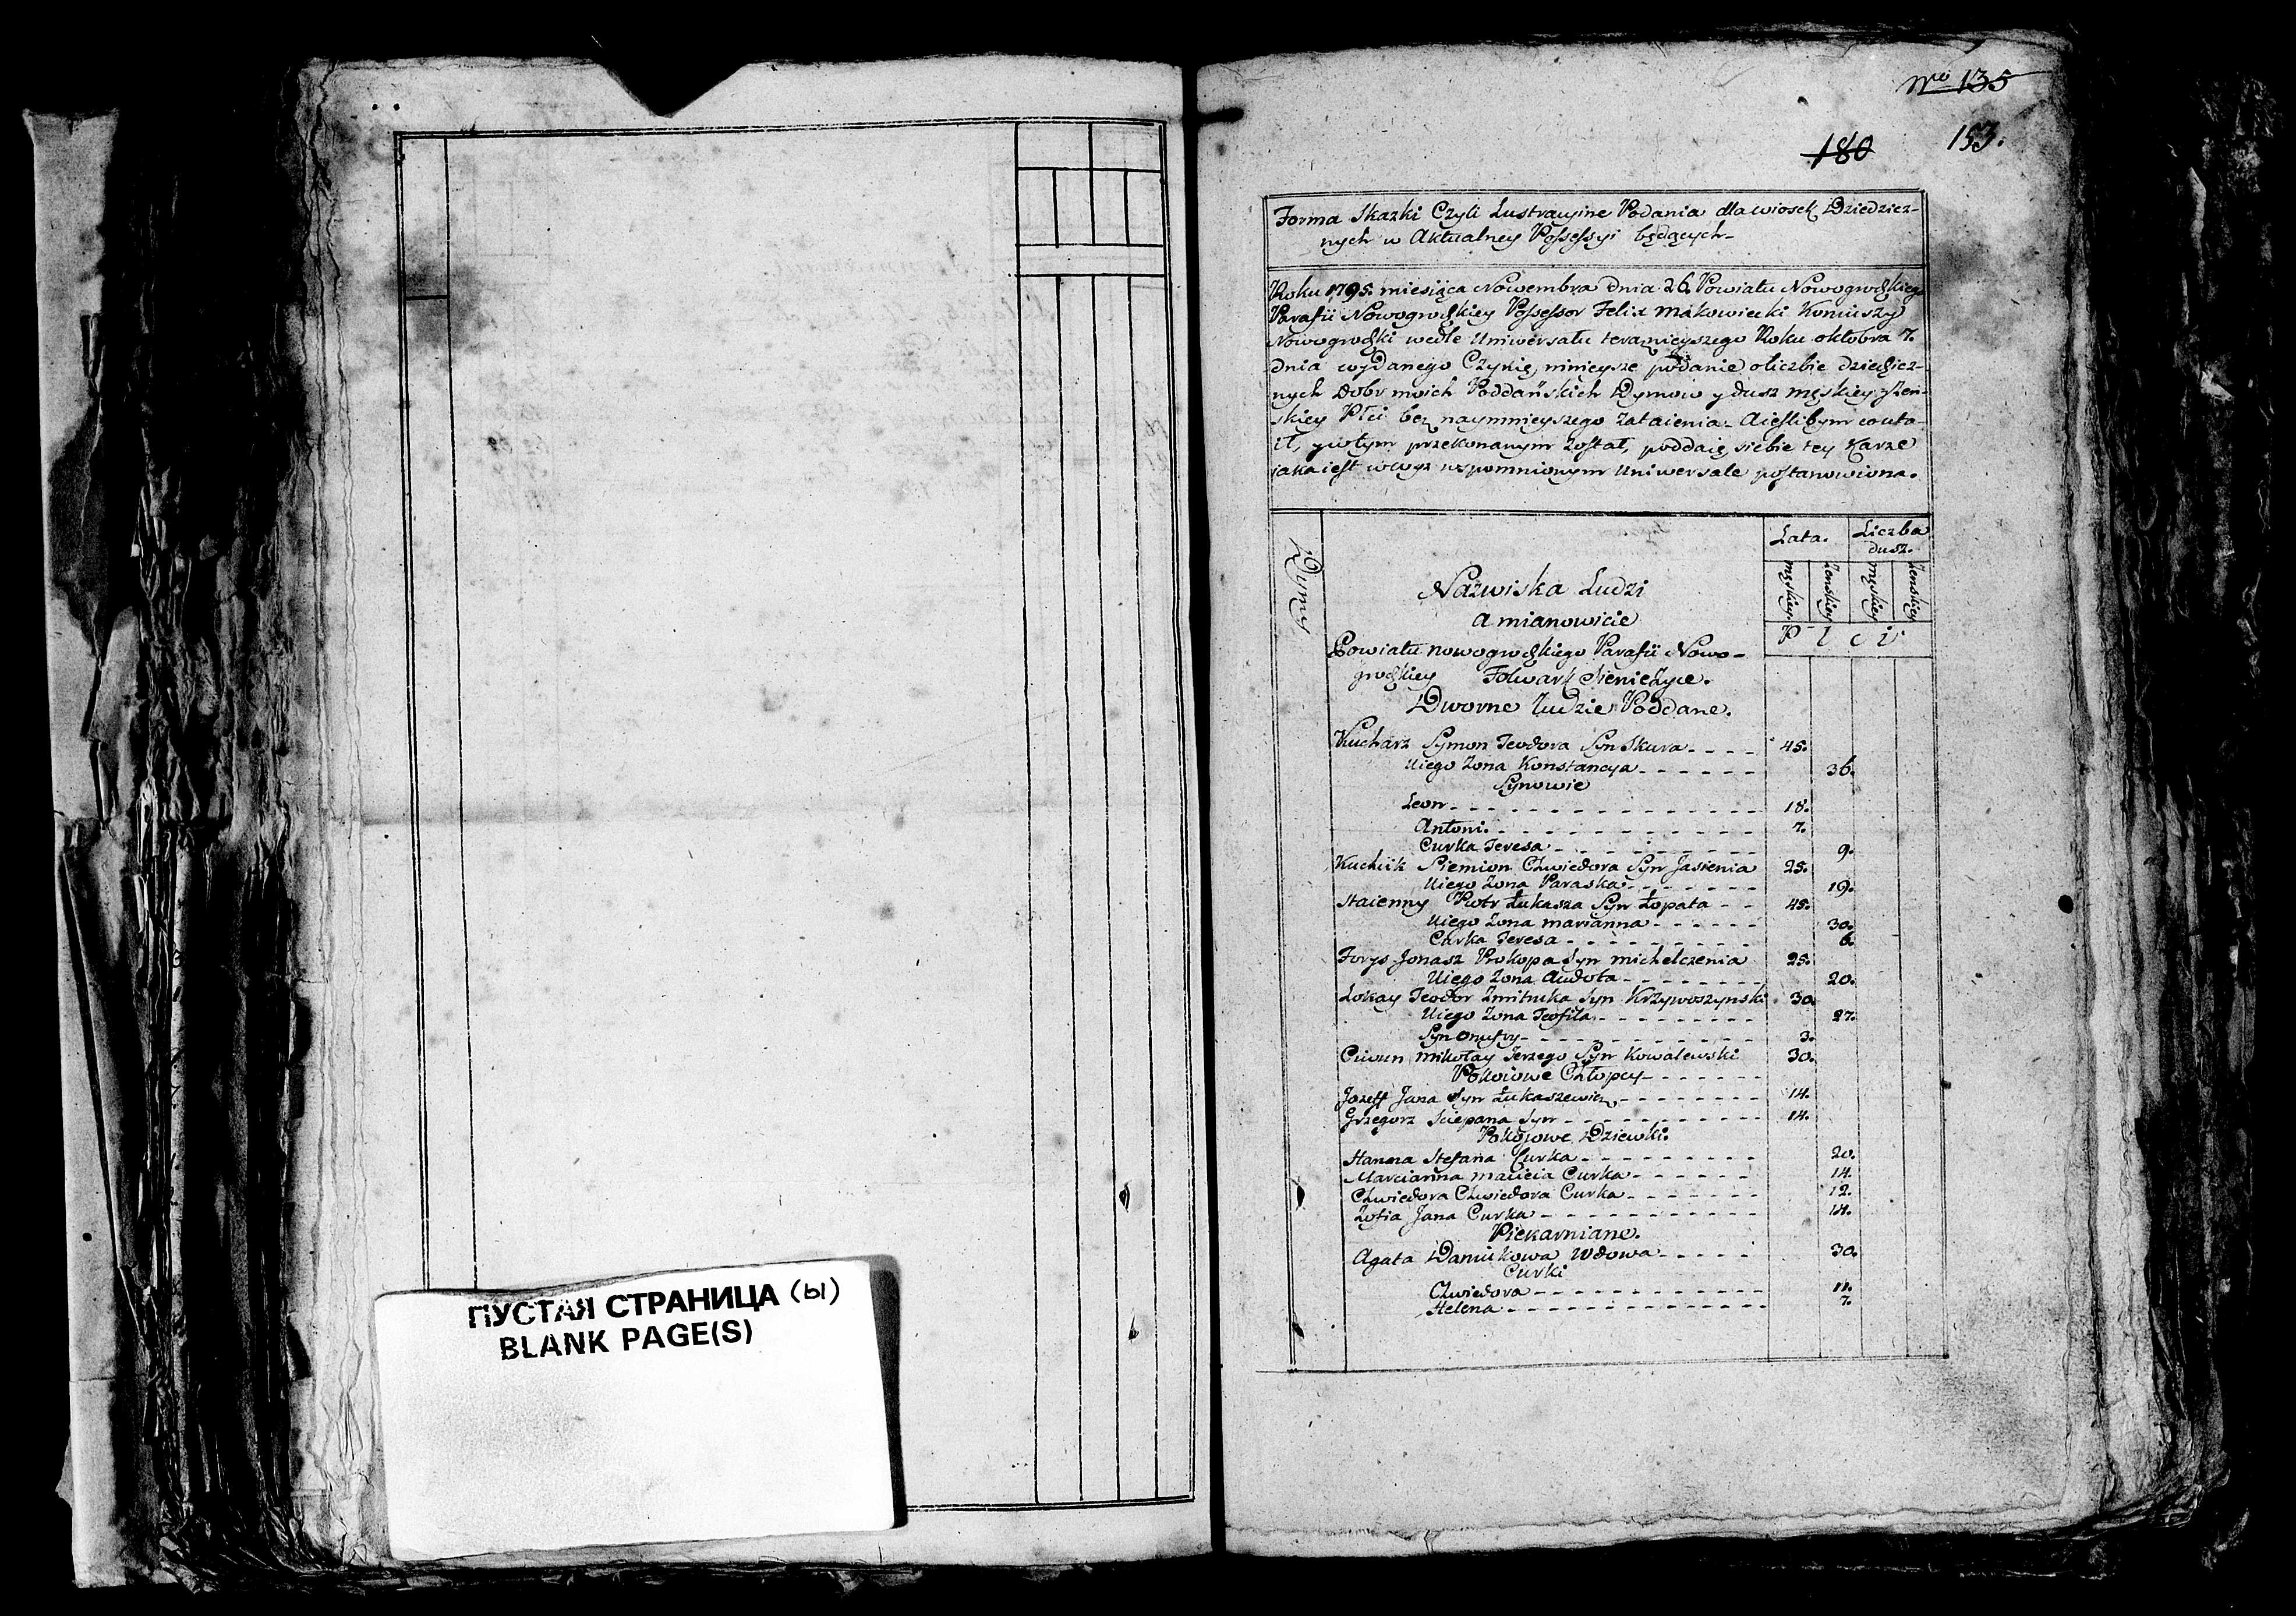 ПУСТАЯ СТРАНИЦА (ы)
BLANK PAGE(S)
Nro 135
180 153.
Forma Skazki Czyli Lustracyine Podania dla wiosek Dziedzicz-
nych w Aktualney Possessyi będących-
Roku 1795. miesiąca Nowembra dnia 26. Powiatu Nowogrodskiego
Parafii Nowogrodskiey Possessor Felix Makowiecki Koniuszy
Nowogrodski wedle Uniwersału teraznieyszego Roku oktobra 7.
dnia wydanego Czynię, ninieysze podanie o liczbie dziedzicz-
nych Dobr moich Poddańskich Dymow y dusz męskiey y Żen-
skiey Płci bez naymnieyszego Zataienia. A ieslibym co uta-
ił, y wtym przekonanym został, poddaię siebie tey Karze
iaka iest w wspomnionym Uniwersale postanowiona.
Dymy
Nazwiska Ludzi
a mianowicie
Lata. Liczba dusz.
męskiey żenskiey męskiey żenskiey
P ł c i
Powiatu nowogrodskiego Parafii Nowo-
grodskiey Folwark Sienieżyce.
Dworne Ludzie Poddane.
Kucharz Symon Teodora Syn Skura - - - - 45.
U iego Zona Konstancya - - - - - - 36.
Synowie
Leon - - - - - - - - - - - - - - - 18.
Antoni. - - - - - - - - - - - - - 7.
Curka Teresa - - - - - - - - - - - 9.
Kuchcik Siemion Chwiedora Syn Jasienia 25.
U iego Zona Paraska - - - - - - - 19.
Staienny Piotr Łukasza Syn Łopata - - 45.
U iego Zona marianna - - - - - - 30.
Curka Teresa - - - - - - - - - - 6.
Forys Jonasz Prokopa Syn michelczenia 25.
U iego Zona Audota - - - - - - - - 20.
Lokay Teodor Zmitruka Syn Krzywoszynski 30.
U iego Zona Teofila - - - - - - - - - 27.
Syn Onufry - - - - - - - - - - - - - 3.
Ciwun mikołay Jerzego Syn Kowalewski 30.
Pokoiowe Chłopcy - - - - - - -
Jozeff Jana Syn Łukaszewicz - - - - - - - - 14.
Grzegorz Sciepana Syn - - - - - - - - - - - 14.
Pokojowe Dziewki.
Hanna Stefana Curka - - - - - - - - - 20.
Marcianna macieia Curka - - - - - - 14.
Chwiedora Chwiedora Curka - - - - - - 12.
Zofia Jana Curka - - - - - - - - - - - 14.
Piekarniane.
Agata Daniukowa Wdowa - - - - - 30.
Curki
Chwiedora - - - - - - - - - - - - 11.
Helena - - - - - - - - - - - - - - 7.